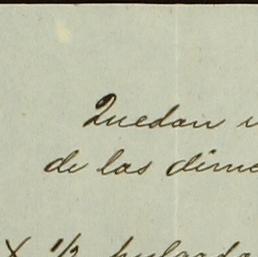 Quedan
de las dime
X 1/2 pulgada